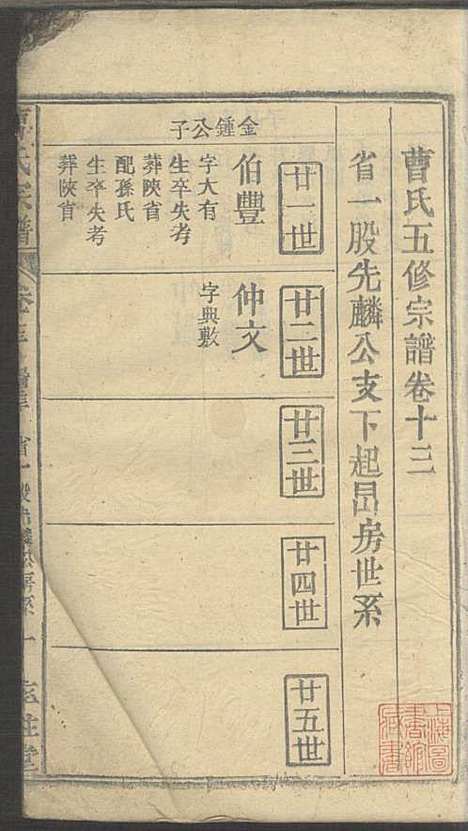 曹氏五修宗譜卷十三
省一股先麟公支下起昺房世系
廿一世
廿二世
廿三世
廿四世
廿五世
金鍾公子
伯豐
字大有
生卒失考
葬陝省
配孫氏
生卒失考
葬陝省
仲文
字典敷
氏宗譜
上海圖書館藏書